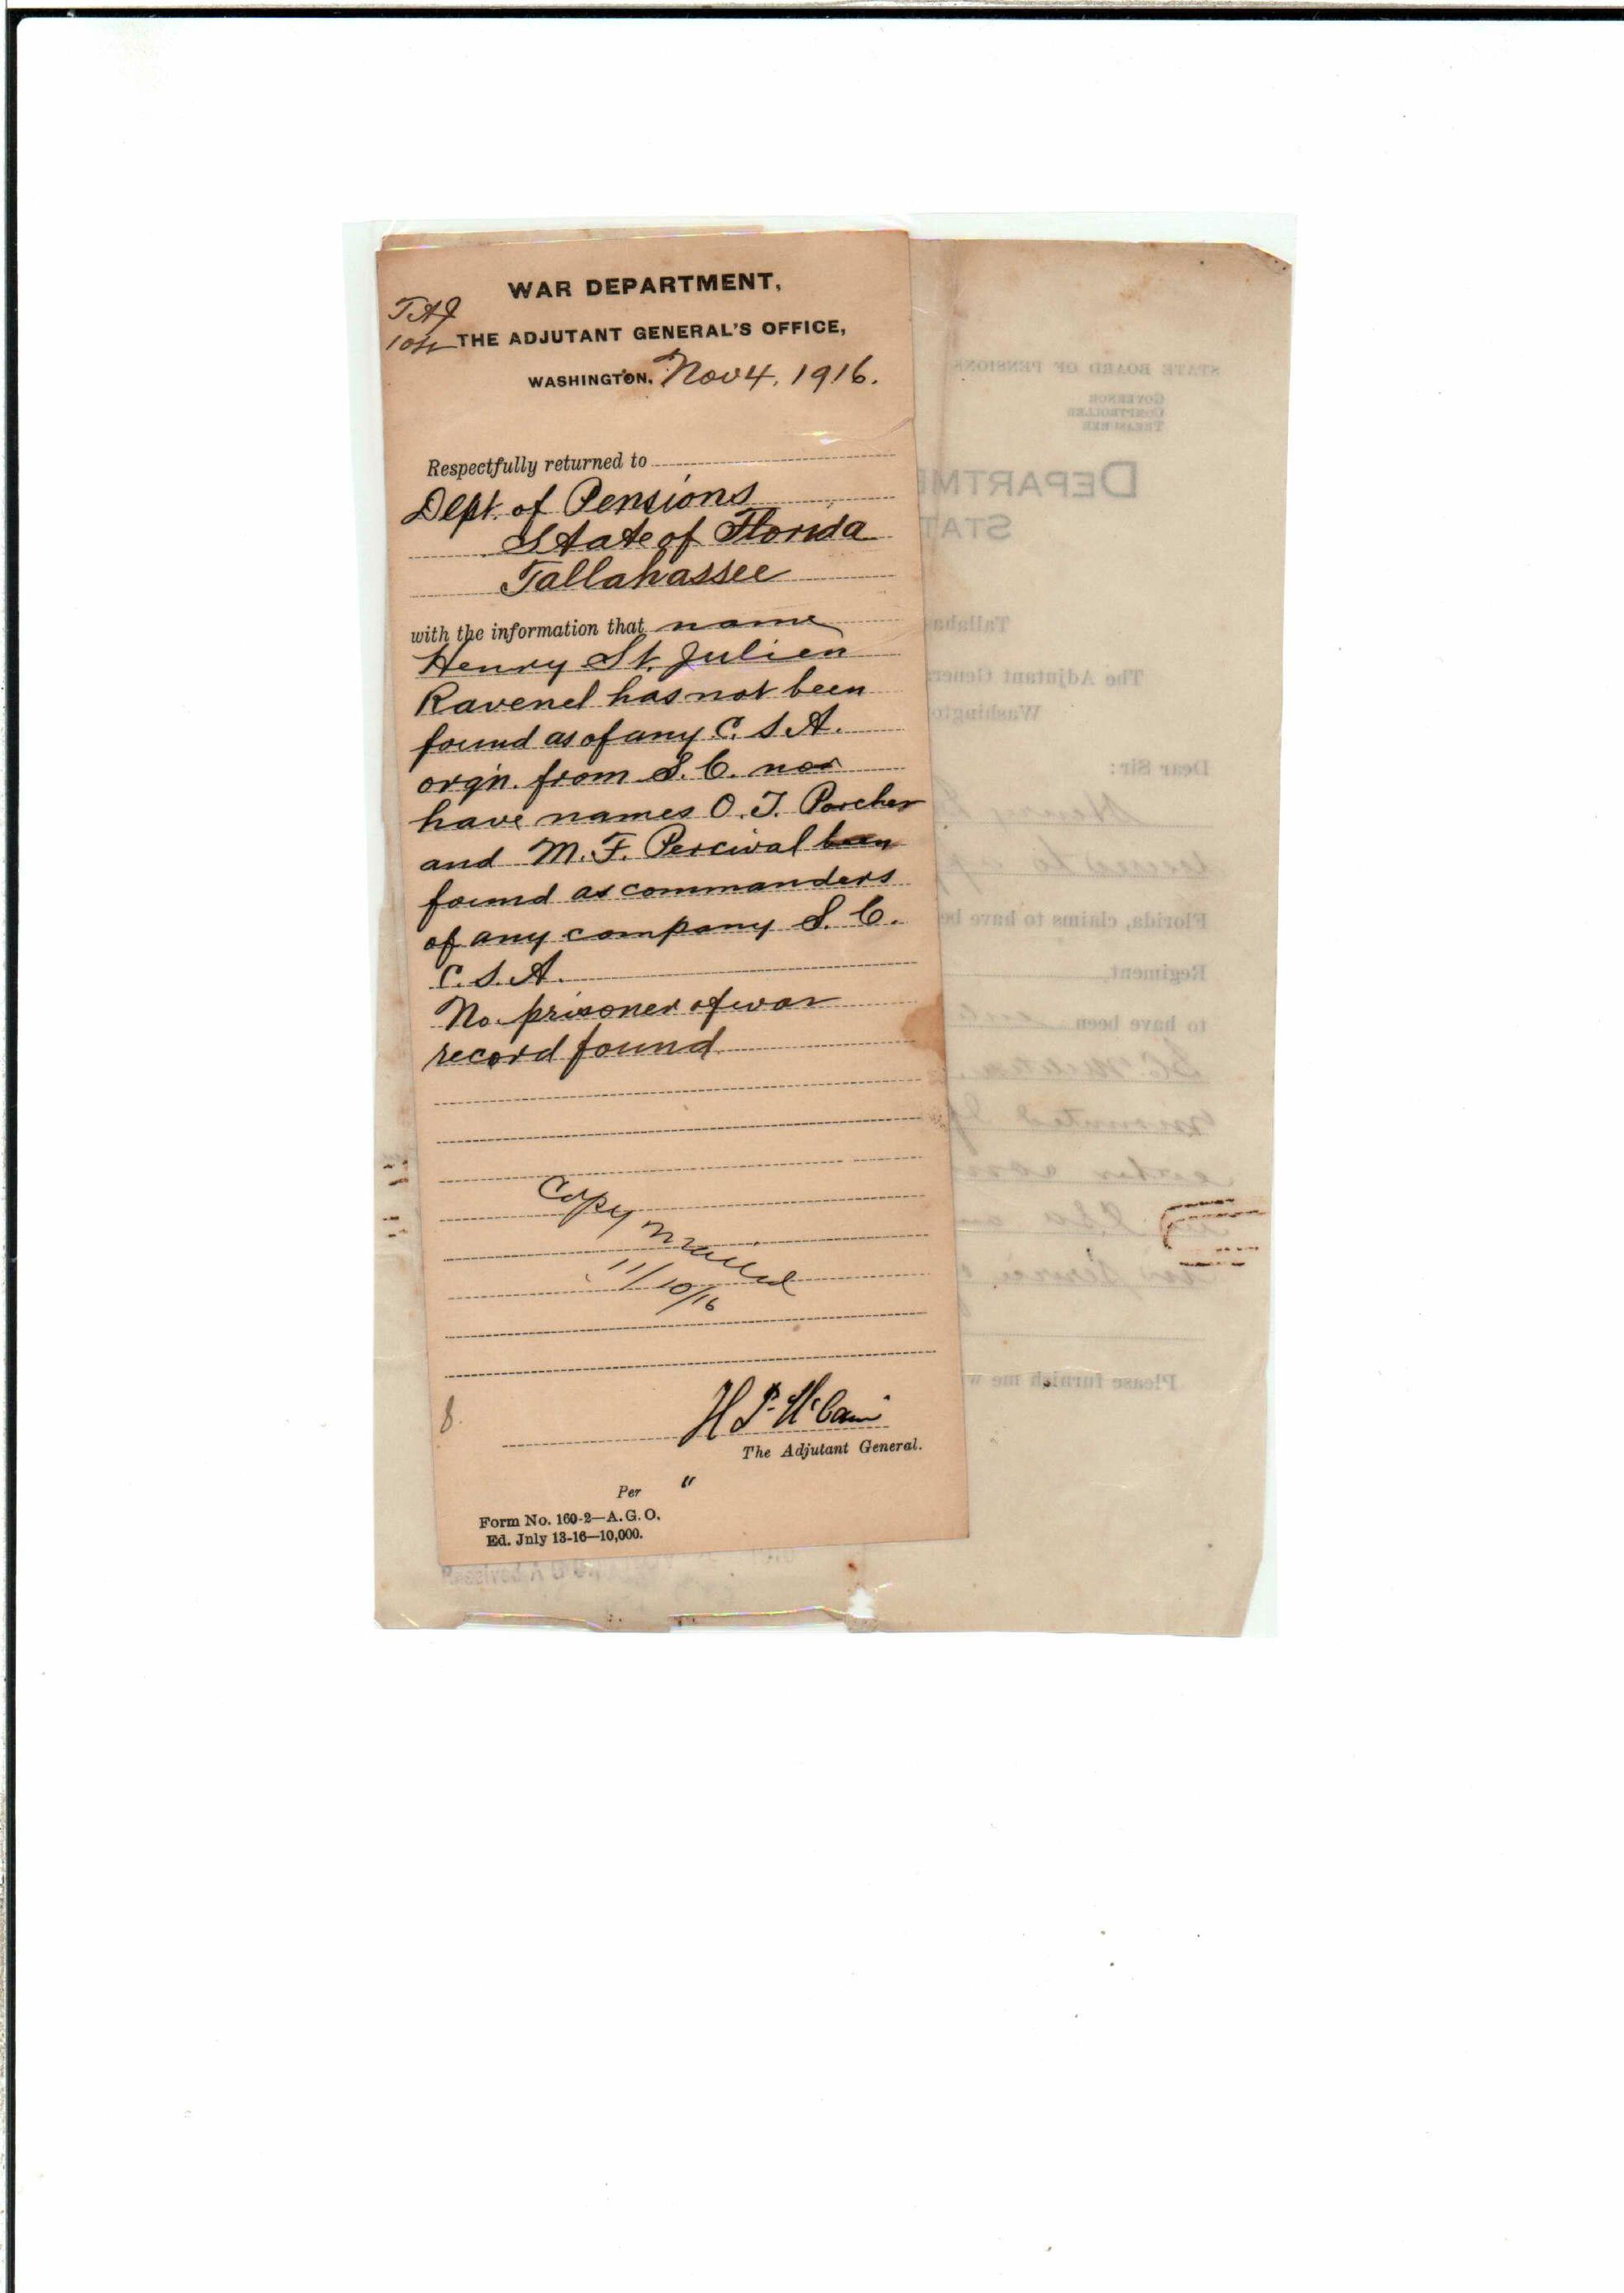 WAR DEPARTMENT,
TAJ
THE ADJUTANT GENERAL'S OFFICE,
WASHINGTON, Nov 4, 1916.
Respectfully returned to
Dept. of Pensions
State of Florida
Tallahassee
with the information that name
Henry St. Julien
Ravenel has not been
found as of any C. S. A.
orgn. from S. C. nor
have names O. J. Porcher
and M. F. Percival been
found as commanders
of any company S. C.
C. S. A.
No prisoner of war
record found
Copy mailed
11/10/16
8.
H P McCain
The Adjutant General.
Per "
Form No. 160-2—A.G.O.
Ed. July 13-16—10,000.
STATE BOARD OF PENSIONS
GOVERNOR
COMPTROLLER
TREASURER
DEPARTME
STAT
Tallahas
The Adjutant Gener
Washingto
Dear Sir:
Henry
Florida, claims to have be
Regiment,
to have been
Please furnish me w
Received A G O